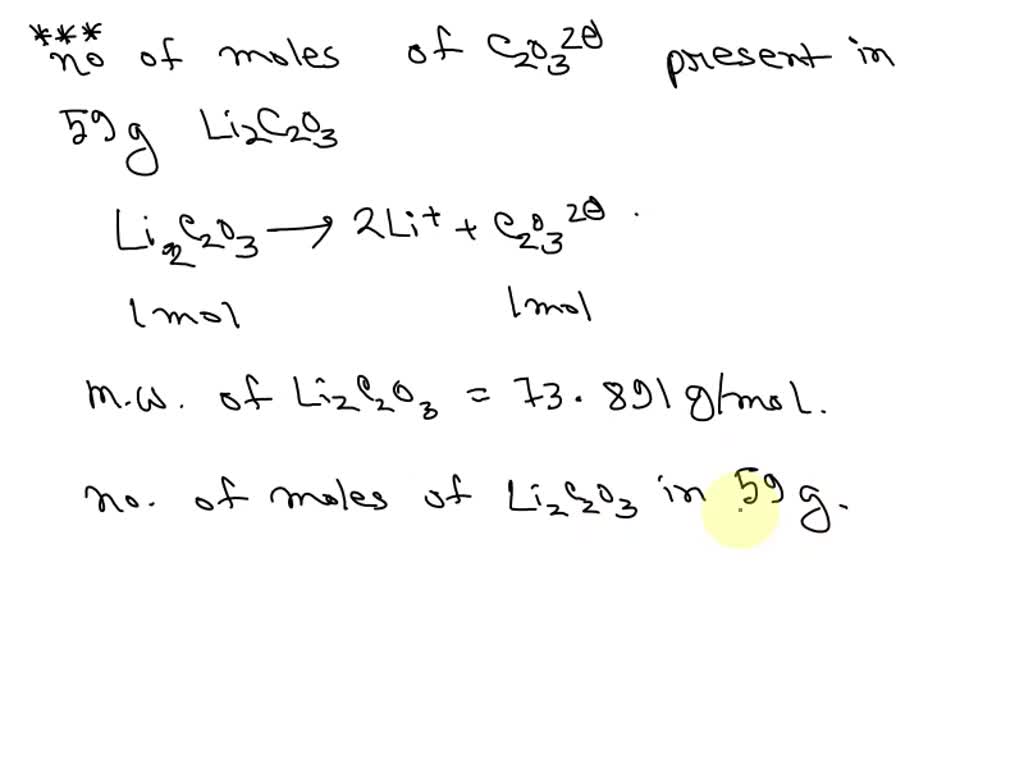 ***
no of moles of C₂O₃²⊖ present in
59 g Li₂C₂O₃
Li₂C₂O₃ → 2Li⁺ + C₂O₃²⊖ .
1mol 1mol
m.w. of Li₂C₂O₃ = 73.891 g/mol.
no. of moles of Li₂C₂O₃ in 59 g.